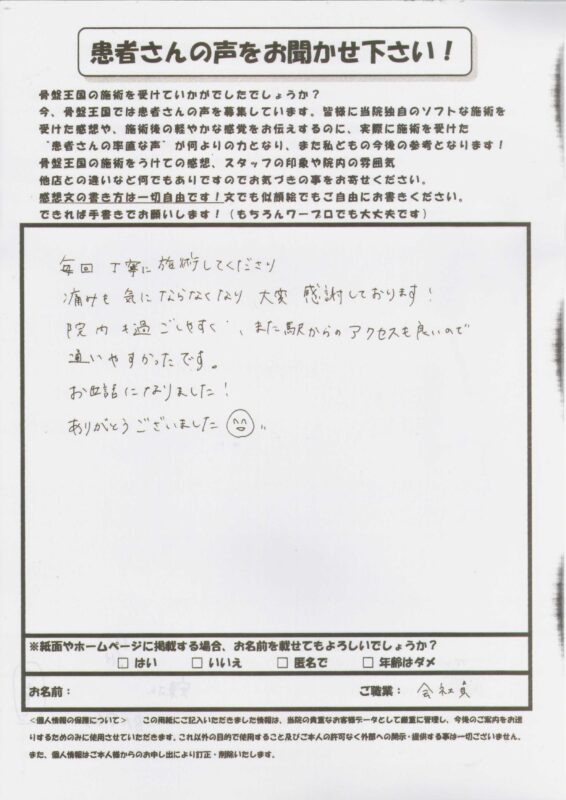 患者さんの声をお聞かせ下さい！
骨盤王国の施術を受けていかがでしたでしょうか？
今、骨盤王国では患者さんの声を募集しています。皆様に当院独自のソフトな施術を
受けた感想や、施術後の軽やかな感覚をお伝えするのに、実際に施術を受けた
"患者さんの率直な声"が何よりの力となり、また私どもの今後の参考となります！
骨盤王国の施術をうけての感想、スタッフの印象や院内の雰囲気
他店との違いなど何でもありですのでお気づきの事をお寄せください。
感想文の書き方は一切自由です！文でも似顔絵でもご自由にお書きください。
できれば手書きでお願いします！（もちろんワープロでも大丈夫です）
毎回 丁寧に施術してくださり
痛みも 気にならなくなり 大変 感謝しております！
院内も過ごしやすく、また駅からのアクセスも良いので
通いやすかったです。
お世話になりました！
ありがとうございました
※紙面やホームページに掲載する場合、お名前を載せてもよろしいでしょうか？
□ はい □ いいえ □ 匿名で □ 年齢はダメ
お名前： ご職業： 会社員
＜個人情報の保障について＞ この用紙にご記入いただきました情報は、当院の貴重なお客様データとして厳重に管理し、今後のご案内をお送
りするためのみに使用させていただきます。これ以外の目的で使用すること及びご本人の許可なく外部への開示・提供する事は一切ございません。
また、個人情報はご本人様からのお申し出により訂正・削除いたします。